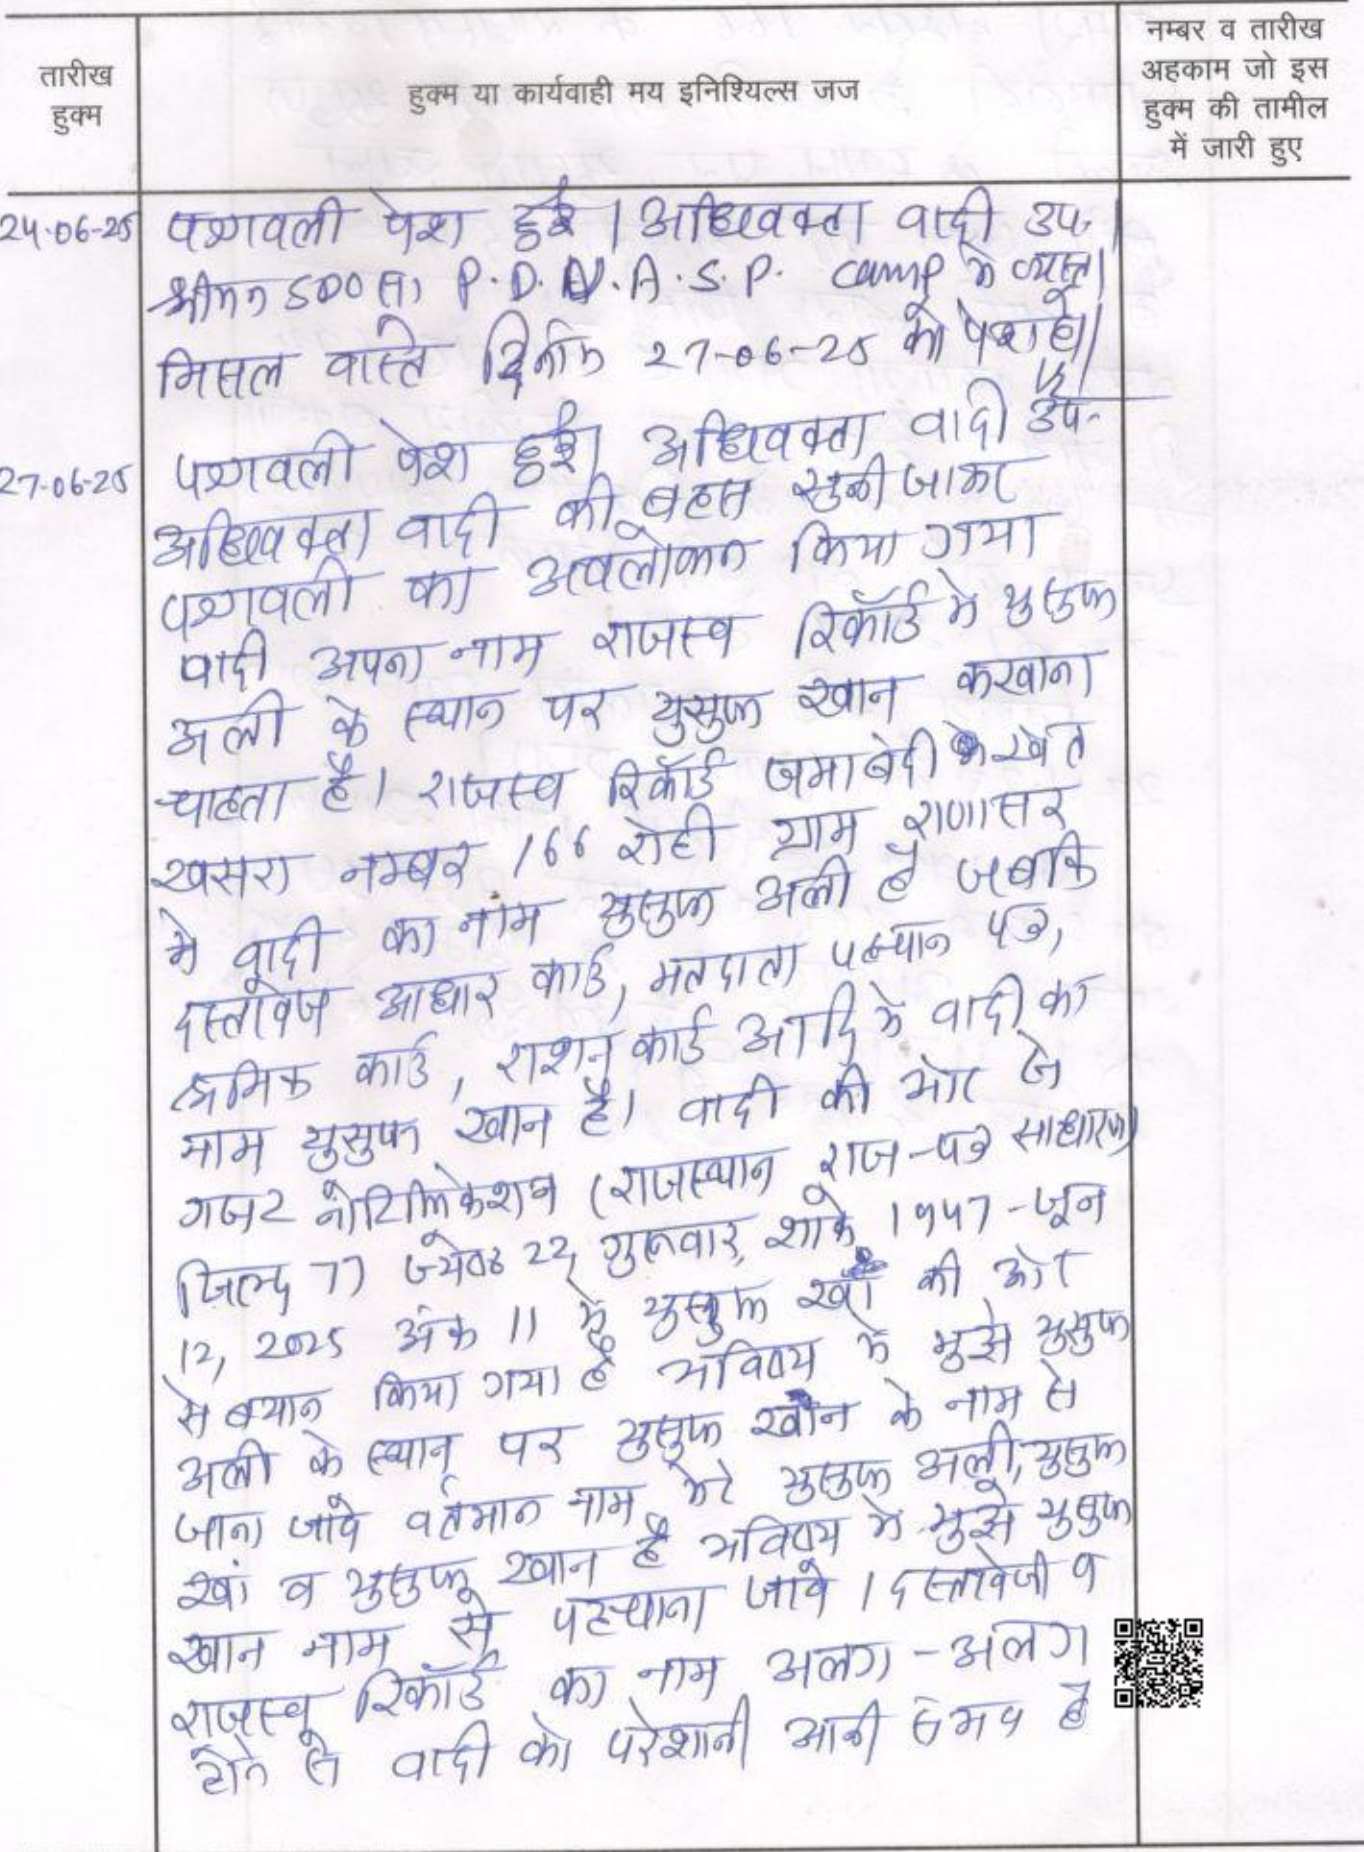 तारीख
हुक्म
हुक्म या कार्यवाही मय इनिशियल्स जज
नम्बर व तारीख
अहकाम जो इस
हुक्म की तामील
में जारी हुए
24-06-25 पत्रावली पेश हुई। अधिवक्ता वादी उप.।
श्रीमान SDO सा P.D.U.A.S.P. camp मे व्यस्त।
मिसल वास्ते दिनांक 27-06-25 को पेश हो।
27-06-25 पत्रावली पेश हुई। अधिवक्ता वादी उप-
अधिवक्ता वादी की बहस सुनी जाकर
पत्रावली का अवलोकन किया गया
वादी अपना नाम राजस्व रिकॉर्ड मे युसुफ
अली के स्थान पर युसुफ खान करवाना
चाहता है। राजस्व रिकॉर्ड जमाबंदी के खेत
खसरा नम्बर 166 रोही ग्राम राणासर
मे वादी का नाम युसुफ अली है जबकि
दस्तावेज आधार कार्ड, मतदाता पहचान पत्र,
श्रमिक कार्ड, राशन कार्ड आदि मे वादी का
नाम युसुफ खान है। वादी की ओर से
गजट नोटिफिकेशन (राजस्थान राज-पत्र साधारण)
जिल्द 77 ज्येष्ठ 22, गुरूवार, शाके 1947-जून
12, 2025 अंक 11 मे युसुफ खाँ की ओर
से बयान किया गया है भविष्य मे मुझे युसुफ
अली के स्थान पर युसुफ खान के नाम से
जाना जावे वर्तमान नाम मेरे युसुफ अली, युसुफ
खां व युसुफ खान है भविष्य मे मुझे युसुफ
खान नाम से पहचाना जावे। दस्तावेजी व
राजस्व रिकॉर्ड का नाम अलग-अलग
होने से वादी को परेशानी आनी संभव है